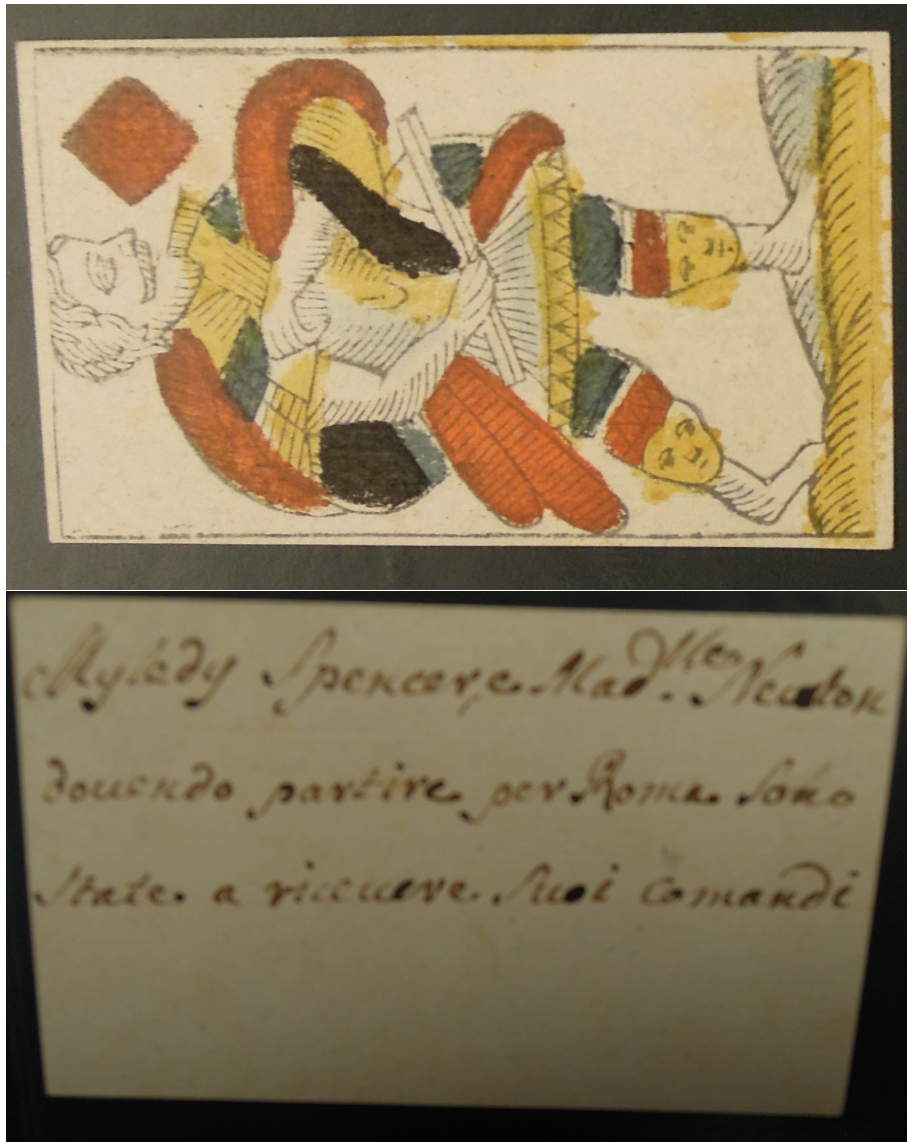 Myledy Spencer, e Mad.lles Newton
douendo partire per Roma sono
state a riceuere suoi comandi